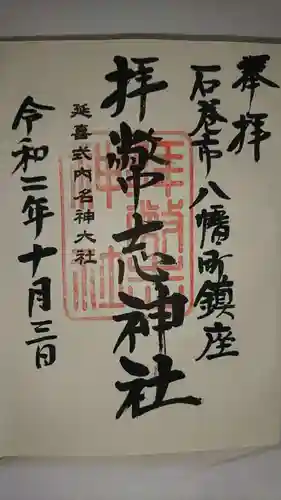 奉拝
石巻市八幡町鎮座
拝幣志神社
延喜式内名神大社
令和二年十月三日